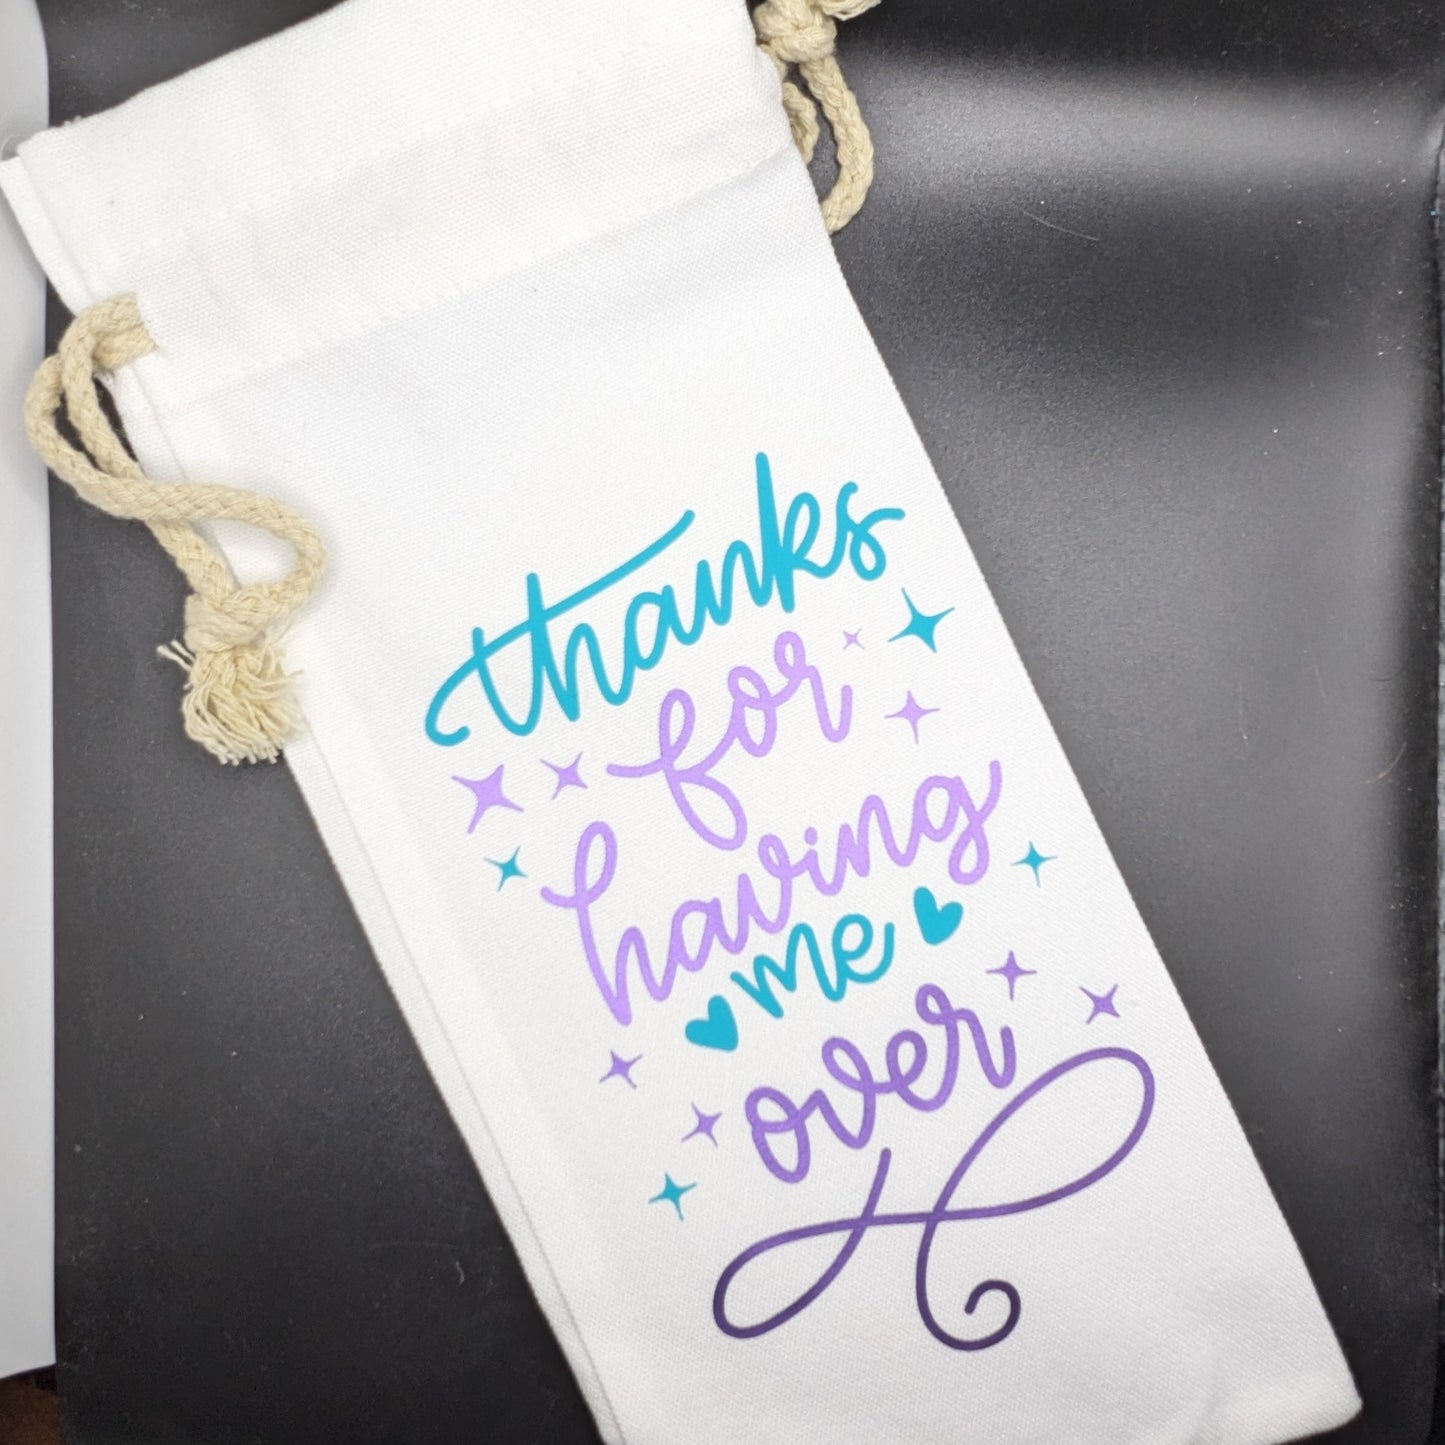 thanks
for
having
me
over